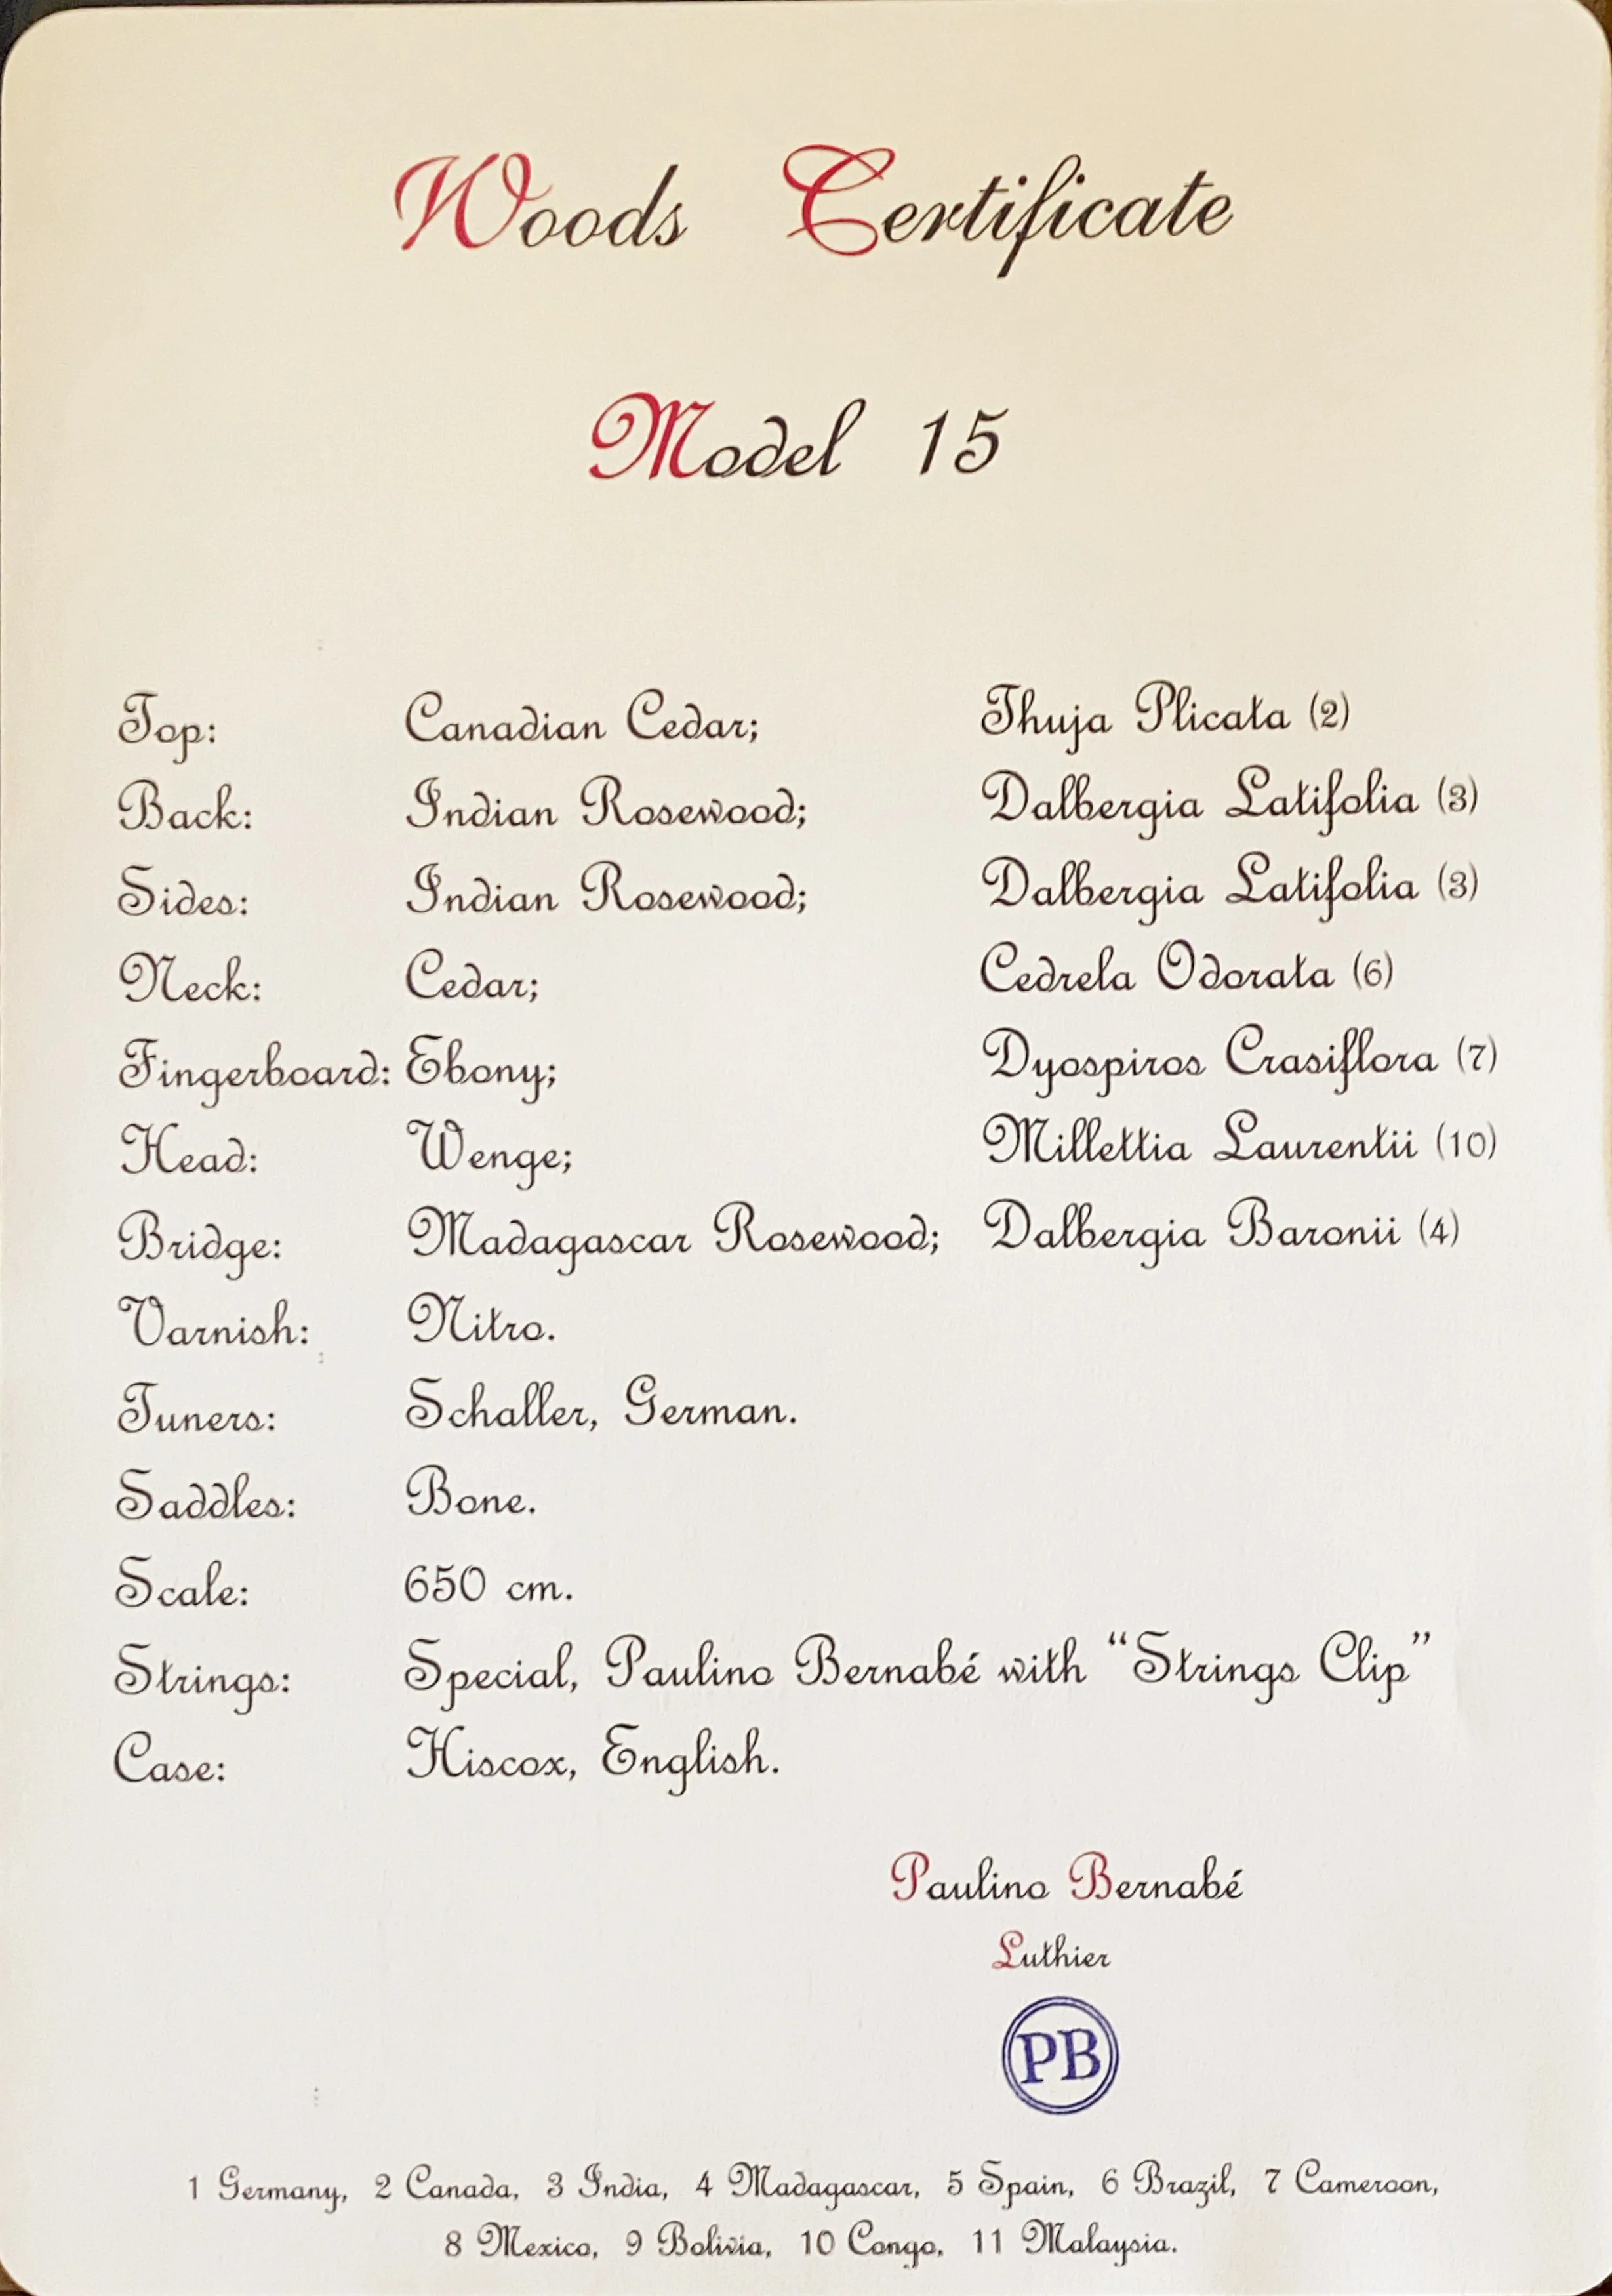 Woods Certificate
Model 15
Top: Canadian Cedar; Thuja Plicata (2)
Back: Indian Rosewood; Dalbergia Latifolia (3)
Sides: Indian Rosewood; Dalbergia Latifolia (3)
Neck: Cedar; Cedrela Odorata (6)
Fingerboard: Ebony; Dyospiros Crasiflora (7)
Head: Wenge; Millettia Laurentii (10)
Bridge: Madagascar Rosewood; Dalbergia Baronii (4)
Varnish: Nitro.
Tuners: Schaller, German.
Saddles: Bone.
Scale: 650 cm.
Strings: Special, Paulino Bernabé with “Strings Clip”
Case: Hiscox, English.
Paulino Bernabé
Luthier
PB
1 Germany, 2 Canada, 3 India, 4 Madagascar, 5 Spain, 6 Brazil, 7 Cameroon,
8 Mexico, 9 Bolivia, 10 Congo, 11 Malaysia.